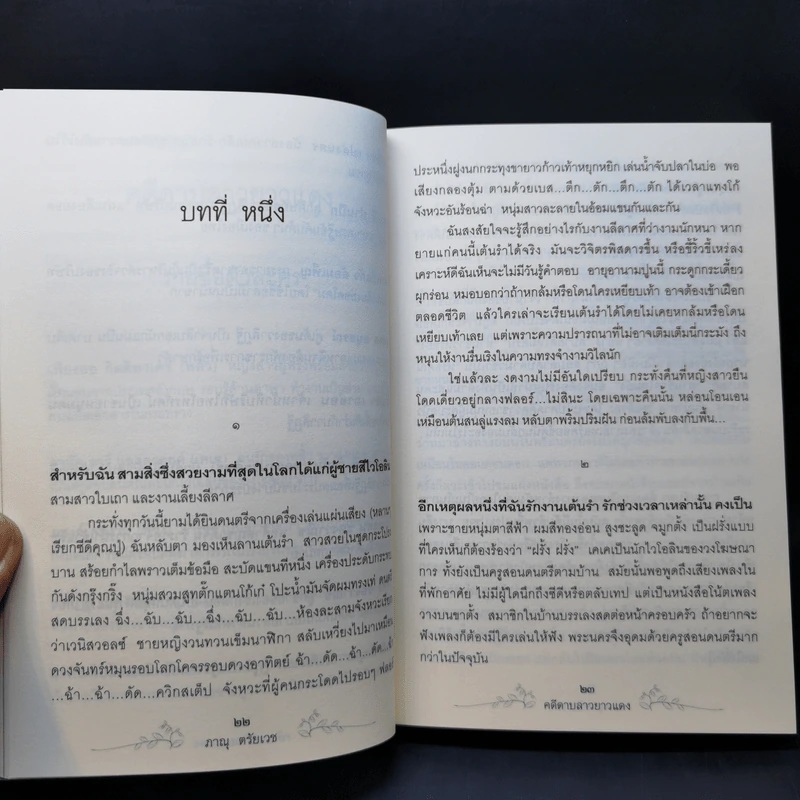 บทที่ หนึ่ง
๑
สำหรับฉัน สามสิ่งซึ่งสวยงามที่สุดในโลกได้แก่ผู้ชายสีไวโอลิน
สามสาวใบเถา และงานเลี้ยงลีลาศ
กระทั่งทุกวันนี้ยามได้ยินดนตรีจากเครื่องเล่นแผ่นเสียง (หลานๆ
เรียกซีดีคุณปู่) ฉันหลับตา มองเห็นลานเต้นรำ สาวสวยในชุดกระโปรง
บาน สร้อยกำไลพราวเต็มข้อมือ สะบัดแขนที่หนึ่ง เครื่องประดับกระทบ
กันดังกรุ๊งกริ๊ง หนุ่มสวมสูทตั๊กแตนโก้เก๋ โปะน้ำมันจัดผมทรงเท่ ดนตรี
สดบรรเลง ฉึ่ง...ฉับ...ฉับ...ฉึ่ง...ฉับ...ฉับ...ห้องละสามจังหวะเรียก
ว่าเวนิสวอลซ์ ชายหญิงวนทวนเข็มนาฬิกา สลับเหวี่ยงไปมาเหมือน
ดวงจันทร์หมุนรอบโลกโคจรรอบดวงอาทิตย์ ฉ้า...ตัด...ฉ้า...ตัด...
...ฉ้า...ฉ้า...ตัด...ควิกสเต็ป จังหวะที่ผู้คนกระโดดไปรอบๆ ฟลอร์
๒๒
ภาณุ ตรัยเวช
ประหนึ่งฝูงนกกระทุงขายาวก้าวเท้าหยุกหยิก เล่นน้ำจับปลาในบ่อ พอ
เสียงกลองตุ้ม ตามด้วยเบส...ตึก...ตัก...ตึก...ตัก ได้เวลาแทงโก้
จังหวะอันร้อนฉ่า หนุ่มสาวละลายในอ้อมแขนกันและกัน
ฉันสงสัยใจจะรู้สึกอย่างไรกับงานลีลาศที่ว่างามนักหนา หาก
ยายแก่คนนี้เต้นรำได้จริง มันจะวิจิตรพิสดารขึ้น หรือขี้ริ้วขี้เหร่ลง
เคราะห์ดีฉันเห็นจะไม่มีวันรู้คำตอบ อายุอานามปูนนี้ กระดูกกระเดี้ยว
ผุกร่อน หมอบอกว่าถ้าหกล้มหรือโดนใครเหยียบเท้า อาจต้องเข้าเฝือก
ตลอดชีวิต แล้วใครเล่าจะเรียนเต้นรำได้โดยไม่เคยหกล้มหรือโดน
เหยียบเท้าเลย แต่เพราะความปรารถนาที่ไม่อาจเติมเต็มนี่กระมัง ถึง
หนุนให้งานรื่นเริงในความทรงจำงามวิไลนัก
ใช่แล้วละ งดงามไม่มีอันใดเปรียบ กระทั่งคืนที่หญิงสาวยืน
โดดเดี่ยวอยู่กลางฟลอร์...ไม่สินะ โดยเฉพาะคืนนั้น หล่อนโอนเอน
เหมือนต้นสนลู่แรงลม หลับตาพริ้มปริ่มฝัน ก่อนล้มพับลงกับพื้น...
๒
อีกเหตุผลหนึ่งที่ฉันรักงานเต้นรำ รักช่วงเวลาเหล่านั้น คงเป็น
เพราะชายหนุ่มตาสีฟ้า ผมสีทองอ่อน สูงชะลูด จมูกตั้ง เป็นฝรั่งแบบ
ที่ใครเห็นก็ต้องร้องว่า "ฝรั้ง ฝรั่ง" เคเคเป็นนักไวโอลินของวงโฆษณา
การ ทั้งยังเป็นครูสอนดนตรีตามบ้าน สมัยนั้นพอพูดถึงเสียงเพลงใน
ที่พักอาศัย ไม่มีผู้ใดนึกถึงซีดีหรือตลับเทป แต่เป็นหนังสือโน้ตเพลง
วางบนขาตั้ง สมาชิกในบ้านบรรเลงสดต่อหน้าครอบครัว ถ้าอยากจะ
ฟังเพลงก็ต้องมีใครเล่นให้ฟัง พระนครจึงอุดมด้วยครูสอนดนตรีมาก
กว่าในปัจจุบัน
๒๓
คดีดาบลาวยาวแดง